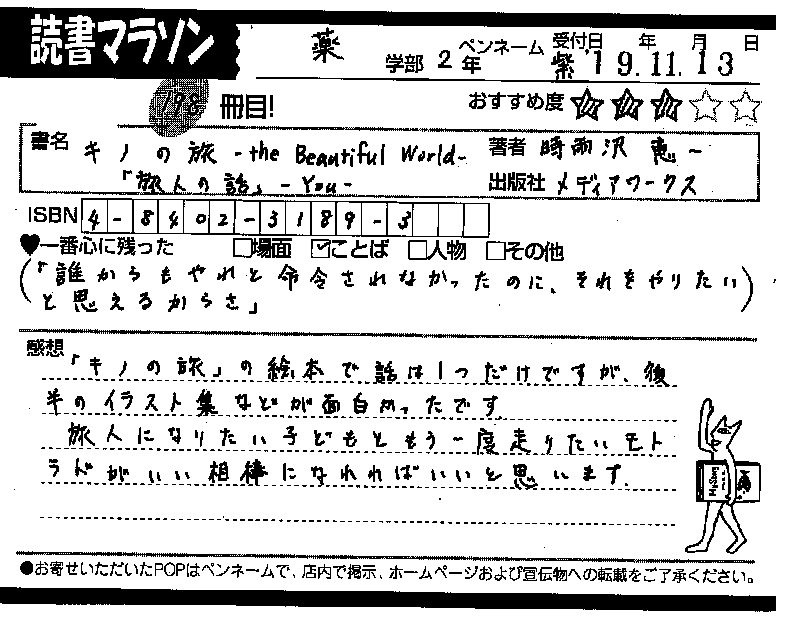 読書マラソン
薬 学部 2年 ペンネーム 紫 受付日 '19年.11月.13日
198 冊目!
おすすめ度 ★★★☆☆
書名 キノの旅 -the Beautiful World-
「旅人の話」 -You-
著者 時雨沢 恵一
出版社 メディアワークス
ISBN 4-8402-3189-3
♥一番心に残った □場面 ☑ことば □人物 □その他
(「誰からもやれと命令されなかったのに、それをやりたい
と思えるからさ」)
感想
「キノの旅」の絵本で話は1つだけですが、後
半のイラスト集などが面白かったです
旅人になりたい子どもともう一度走りたいモト
ラドがいい相棒になれればいいと思います.
●お寄せいただいたPOPはペンネームで、店内で掲示、ホームページおよび宣伝物への転載をご了承ください。